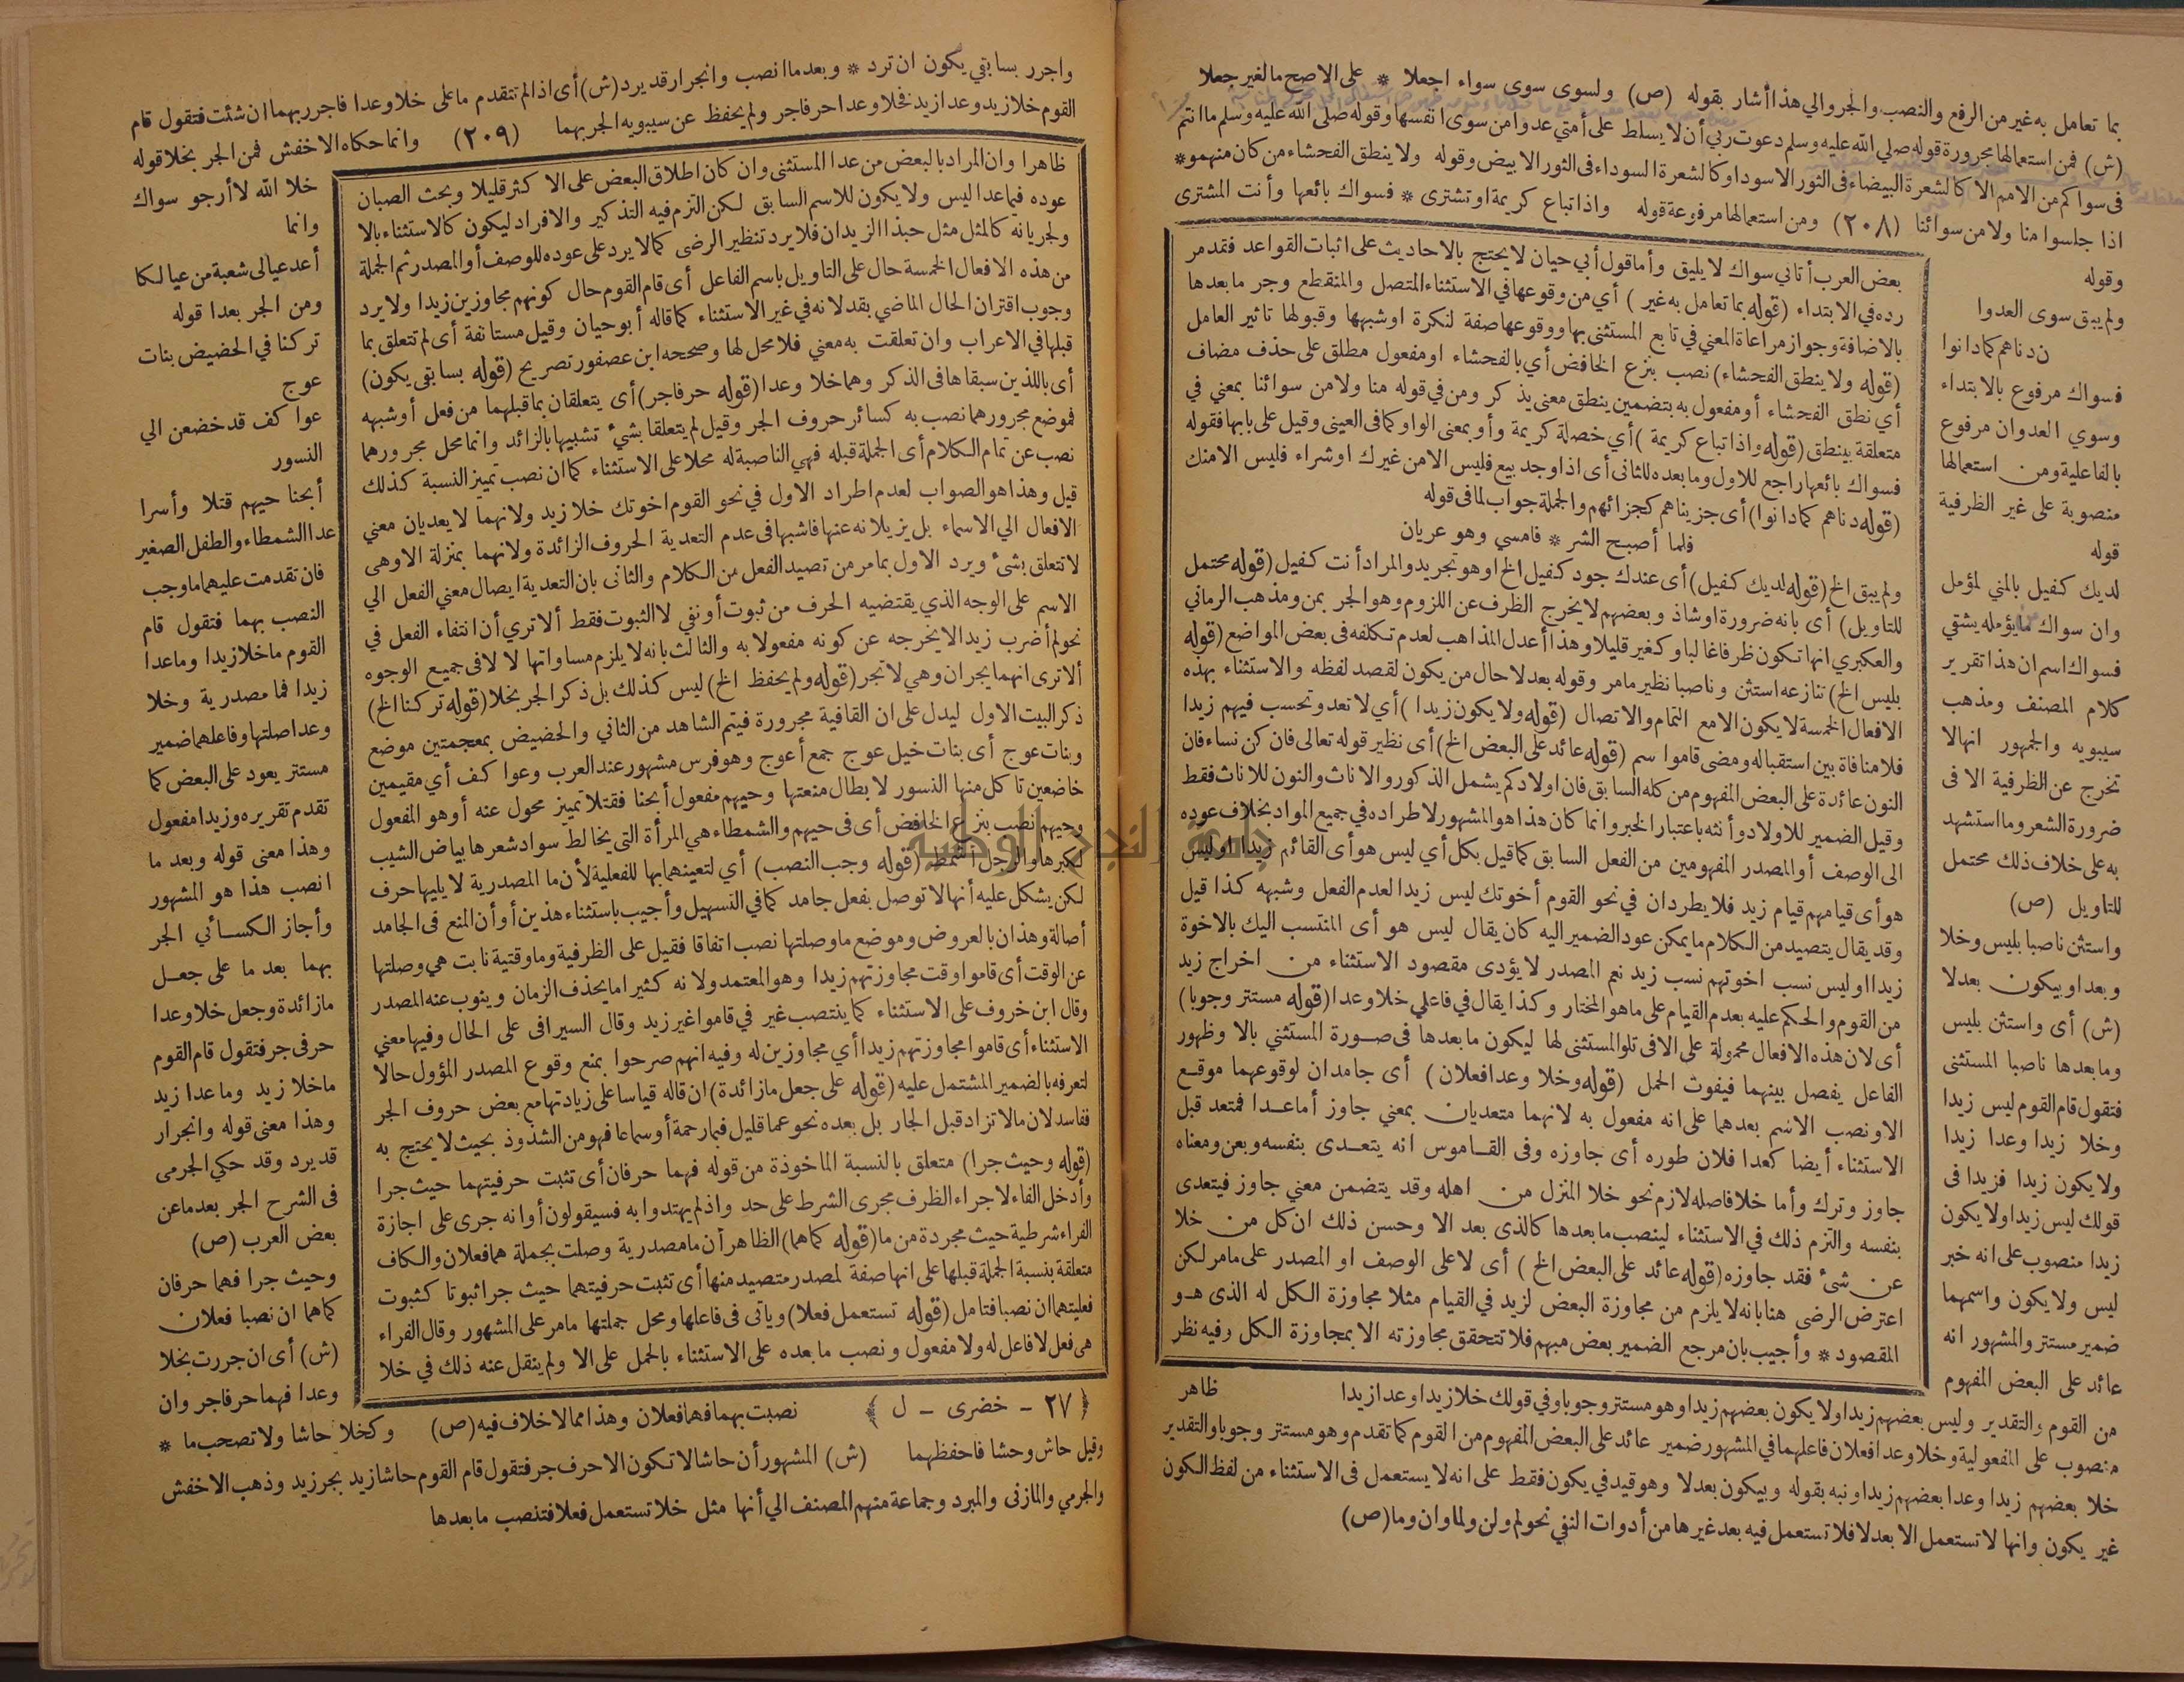 بما تعامل به غير من الرفع والنصب والجر والي هذا أشار بقوله (ص) ولسوى سوى سواء اجعلا * على الاصح ما لغير جعلا
(ش) فمن استعمالها مجرورة قوله صلي الله عليه وسلم دعوت ربي أن لا يسلط على أمتي عدوا من سوى انفسها وقوله صلى الله عليه وسلم ما انتم
فى سواكم من الامم الا كالشعرة البيضاء فى الثور الاسود او كالشعرة السوداء فى الثور الابيض وقوله ولا ينطق الفحشاء من كان منهمو *
اذا جلسوا منا ولا من سوائنا (٢٠٨) ومن استعمالها مرفوعة قوله واذا تباع كريمة او تشترى * فسواك بائعها وأنت المشترى
وقوله
ولم يبق سوى العدوا
ن دناهم كما دانوا
فسواك مرفوع بالابتداء
وسوي العدوان مرفوع
بالفاعلية ومن استعمالها
منصوبة على غير الظرفية
قوله
لديك كفيل بالمني لمؤمل
وان سواك من يؤمله يشقي
فسواك اسم ان هذا تقرير
كلام المصنف ومذهب
سيبويه والجمهور انها لا
تخرج عن الظرفية الا فى
ضرورة الشعر وما استشهد
به على خلاف ذلك محتمل
للتاويل (ص)
واستثن ناصبا بليس وخلا
وبعدا وبيكون بعد لا
(ش) أى واستثن بليس
وما بعدها ناصبا المستثنى
فتقول قام القوم ليس زيدا
وخلا زيدا وعدا زيدا
ولا يكون زيدا فزيدا فى
قولك ليس زيدا ولا يكون
زيدا منصوب على انه خبر
ليس ولا يكون واسمهما
ضمير مستتر والمشهور انه
عائد على البعض المفهوم
بعض العرب أتاني سواك لا يليق وأما قول أبي حيان لا يحتج بالاحاديث على اثبات القواعد فقد مر
رده في الابتداء (قوله بما تعامل به غير) أي من وقوعها في الاستثناء المتصل والمنقطع وجر ما بعدها
بالاضافة وجواز مراعاة المعني في تابع المستثنى بها ووقوعها صفة لنكرة او شبهها وقبولها تاثير العامل
(قوله ولا ينطق الفحشاء) نصب بنزع الخافض أي بالفحشاء او مفعول مطلق على حذف مضاف
أي نطق الفحشاء أو مفعول به بتضمين ينطق معنى يذكر ومن في قوله منا ولا من سوائنا بمعني في
متعلقة بينطق (قوله واذا تباع كريمة) أي خصلة كريمة وأو بمعنى الواو كما فى العينى وقيل على بابها فقوله
فسواك بائعها راجع للاول وما بعده للثانى أى اذا وجد بيع فليس الا من غيرك او شراء فليس الا منك
(قوله دناهم كما دانوا) أى جزيناهم كجزائهم والجملة جواب لما فى قوله
فلما أصبح الشر * فامسي وهو عريان
ولم يبق الخ (قوله لديك كفيل) أى عندك جود كفيل الخ او هو تجريد والمراد أنت كفيل (قوله محتمل
للتاويل) أى بانه ضرورة او شاذ وبعضهم لا يخرج الظرف عن اللزوم وهو الجر بمن ومذهب الرماني
والعكبري انها تكون ظرفا غالبا وكغير قليلا وهذا أعدل المذاهب لعدم تكلفه فى بعض المواضع (قوله
بليس الخ) تنازعه استثن وناصبا نظير ما مر وقوله بعد لا حال من يكون لقصد لفظه والاستثناء بهذه
الافعال الخمسة لا يكون الا مع التمام والاتصال (قوله ولا يكون زيدا) أي لا تعد وتحسب فيهم زيدا
فلا منافاة بين استقباله ومضى قاموا سم (قوله عائد على البعض الخ) أى نظير قوله تعالى فان كن نساء فان
النون عائدة على البعض المفهوم من كله السابق فان اولادكم يشمل الذكور والاناث والنون للاناث فقط
وقيل الضمير للاولاد وأنثه باعتبار الخبر وانما كان هذا هو المشهور لاطراده في جميع المواد بخلاف عوده
الى الوصف أو المصدر المفهومين من الفعل السابق كما قيل بكل أي ليس هو أى القائم زيدا او ليس
هو أى قيامهم قيام زيد فلا يطردان في نحو القوم أخوتك ليس زيدا لعدم الفعل وشبهه كذا قيل
وقد يقال يتصيد من الكلام ما يمكن عود الضمير اليه كان يقال ليس هو أى المنتسب اليك بالاخوة
زيدا او ليس نسب اخوتهم نسب زيد نعم المصدر لا يؤدى مقصود الاستثناء من اخراج زيد
من القوم والحكم عليه بعدم القيام على ما هو المختار وكذا يقال في فاعلي خلا وعدا (قوله مستتر وجوبا)
أى لان هذه الافعال محمولة على الا فى تلو المستثنى لها ليكون ما بعدها فى صورة المستثني بالا وظهور
الفاعل يفصل بينهما فيفوت الحمل (قوله وخلا وعدا فعلان) أى جامدان لوقوعهما موقع
الا ونصب الاسم بعدهما على انه مفعول به لانهما متعديان بمعني جاوز أما عدا فمتعد قبل
الاستثناء أيضا كعدا فلان طوره أى جاوزه وفى القاموس انه يتعدى بنفسه وبعن ومعناه
جاوز وترك وأما خلا فاصله لازم نحو خلا المنزل من اهله وقد يتضمن معني جاوز فيتعدى
بنفسه والتزم ذلك في الاستثناء لينصب ما بعدها كالذى بعد الا وحسن ذلك ان كل من خلا
عن شئ فقد جاوزه (قوله عائد على البعض الخ) أى لا على الوصف او المصدر على ما مر لكن
اعترض الرضى هنا بانه لا يلزم من مجاوزة البعض لزيد في القيام مثلا مجاوزة الكل له الذى هو
المقصود * وأجيب بان مرجع الضمير بعض مبهم فلا تتحقق مجاوزته الا بمجاوزة الكل وفيه نظر
ظاهر
من القوم والتقدير وليس بعضهم زيدا ولا يكون بعضهم زيدا وهو مستتر وجوبا وفي قولك خلا زيدا وعدا زيدا
منصوب على المفعولية وخلا وعدا فعلان فاعلهما في المشهور ضمير عائد على البعض المفهوم من القوم كما تقدم وهو مستتر وجوبا والتقدير
خلا بعضهم زيدا وعدا بعضهم زيدا ونبه بقوله وبيكون بعد لا وهو قيد في يكون فقط على انه لا يستعمل فى الاستثناء من لفظ الكون
غير يكون وانها لا تستعمل الا بعد لا فلا تستعمل فيه بعد غيرها من أدوات النفي نحو لم ولن ولما وان وما (ص)
واجرر بسابقي يكون ان ترد * وبعد ما انصب وانجرار قد يرد (ش) أى اذا لم تتقدم ما على خلا وعدا فاجرر بهما ان شئت فتقول قام
القوم خلا زيد وعدا زيد فخلا وعدا حرفا جر ولم يحفظ عن سيبويه الجر بهما (٢٠٩) وانما حكاه الاخفش فمن الجر بخلا قوله
خلا الله لا أرجو سواك
وانما
أعد عيالى شعبة من عيالكا
ومن الجر بعدا قوله
تركنا في الحضيض بنات
عوج
عواكف قد خضعن الي
النسور
أبحنا حيهم قتلا وأسرا
عدا الشمطاء والطفل الصغير
فان تقدمت عليهما ما وجب
النصب بهما فتقول قام
القوم ما خلا زيدا وما عدا
زيدا فما مصدرية وخلا
وعدا صلتها وفاعلهما ضمير
مستتر يعود على البعض كما
تقدم تقريره وزيدا مفعول
وهذا معنى قوله وبعد ما
انصب هذا هو المشهور
وأجاز الكسائي الجر
بهما بعد ما على جعل
ما زائدة وجعل خلا وعدا
حرفى جر فتقول قام القوم
ما خلا زيد وما عدا زيد
وهذا معنى قوله وانجرار
قد يرد وقد حكي الجرمى
فى الشرح الجر بعد ما عن
بعض العرب (ص)
وحيث جرا فهما حرفان
كما هما ان نصبا فعلان
(ش) أى ان جررت بخلا
وعدا فهما حرفا جر وان
ظاهرا وان المراد بالبعض من عدا المستثنى وان كان اطلاق البعض على الاكثر قليلا وبحث الصبان
عوده فيما عدا ليس ولا يكون للاسم السابق لكن التزم فيه التذكير والافراد ليكون كالاستثناء بالا
ولجريانه كالمثل مثل حبذا الزيدان فلا يرد تنظير الرضى كما لا يرد على عوده للوصف أو المصدر ثم الجملة
من هذه الافعال الخمسة حال على التاويل باسم الفاعل أى قام القوم حال كونهم مجاوزين زيدا ولا يرد
وجوب اقتران الحال الماضي بقد لانه في غير الاستثناء كما قاله أبو حيان وقيل مستانفة أى لم تتعلق بما
قبلها في الاعراب وان تعلقت به معني فلا محل لها وصححه ابن عصفور تصريح (قوله بسابقى يكون)
أى باللذين سبقاها فى الذكر وهما خلا وعدا (قوله حرفا جر) أى يتعلقان بما قبلهما من فعل أو شبهه
فموضع مجرورهما نصب به كسائر حروف الجر وقيل لم يتعلقا بشئ تشبيها بالزائد وانما محل مجرورهما
نصب عن تمام الكلام أى الجملة قبله فهي الناصبة له محلا على الاستثناء كما ان نصب تمييز النسبة كذلك
قيل وهذا هو الصواب لعدم اطراد الاول في نحو القوم اخوتك خلا زيد ولانهما لا يعديان معني
الافعال الي الاسماء بل يزيلانه عنها فاشبها فى عدم التعدية الحروف الزائدة ولانهما بمنزلة الا وهى
لا تتعلق بشئ ويرد الاول بما مر من تصيد الفعل من الكلام والثانى بان التعدية ايصال معني الفعل الي
الاسم على الوجه الذي يقتضيه الحرف من ثبوت أو نفي لا الثبوت فقط ألا تري أن انتفاء الفعل في
نحو لم أضرب زيدا لا يخرجه عن كونه مفعولا به والثالث بانه لا يلزم مساواتها لا لا فى جميع الوجوه
ألا ترى انهما يجران وهي لا تجر (قوله ولم يحفظ الخ) ليس كذلك بل ذكر الجر بخلا (قوله تركنا الخ)
ذكر البيت الاول ليدل على ان القافية مجرورة فيتم الشاهد من الثاني والحضيض بمعجمتين موضع
وبنات عوج أى بنات خيل عوج جمع أعوج وهو فرس مشهور عند العرب وعواكف أي مقيمين
خاضعين تاكل منها النسور لابطال منعتها وحيهم مفعول أبحنا فقتلا تمييز محول عنه أو هو المفعول
وحيهم نصب بنزع الخافض أى فى حيهم والشمطاء هي المرأة التى يخالط سواد شعرها بياض الشيب
لكبرها والرجل أشمط (قوله وجب النصب) أي لتعينهما بها للفعلية لأن ما المصدرية لا يليها حرف
لكن يشكل عليه أنها لا توصل بفعل جامد كما في التسهيل وأجيب باستثناء هذين أو أن المنع فى الجامد
أصالة وهذان بالعروض وموضع ما وصلتها نصب اتفاقا فقيل على الظرفية وما وقتية نابت هي وصلتها
عن الوقت أى قاموا وقت مجاوزتهم زيدا وهو المعتمد ولانه كثيرا ما يحذف الزمان وينوب عنه المصدر
وقال ابن خروف على الاستثناء كما ينتصب غير في قاموا غير زيد وقال السيرافى على الحال وفيها معني
الاستثناء أى قاموا مجاوزتهم زيدا أي مجاوزين له وفيه انهم صرحوا بمنع وقوع المصدر المؤول حالا
لتعرفه بالضمير المشتمل عليه (قوله على جعل ما زائدة) ان قاله قياسا على زيادتها مع بعض حروف الجر
ففاسد لان ما لا تزاد قبل الجار بل بعده نحو عما قليل فبما رحمة أو سماعا فهو من الشذوذ بحيث لا يحتج به
(قوله وحيث جرا) متعلق بالنسبة الماخوذة من قوله فهما حرفان أى تثبت حرفيتهما حيث جرا
وأدخل الفاء لاجراء الظرف مجرى الشرط على حد واذ لم يهتدوا به فسيقولون أو انه جرى على اجازة
الفراء شرطية حيث مجردة من ما (قوله كما هما) الظاهر أن ما مصدرية وصلت بجملة هما فعلان والكاف
متعلقة بنسبة الجملة قبلها على انها صفة لمصدر متصيد منها أى تثبت حرفيتهما حيث جرا ثبوتا كثبوت
فعليتهما ان نصبا فتامل (قوله تستعمل فعلا) وياتى فى فاعلها ومحل جملتها ما مر على المشهور وقال الفراء
هى فعل لا فاعل له ولا مفعول ونصب ما بعده على الاستثناء بالحمل على الا ولم ينقل عنه ذلك في خلا
﴿٢٧ - خضرى - ل﴾
نصبت بهما فهما فعلان وهذا مما لا خلاف فيه (ص) وكخلا حاشا ولا تصحب ما *
وقيل حاش وحشا فاحفظهما (ش) المشهور أن حاشا لا تكون الا حرف جر فتقول قام القوم حاشا زيد بجر زيد وذهب الاخفش
والجرمي والمازنى والمبرد وجماعة منهم المصنف الي أنها مثل خلا تستعمل فعلا فتنصب ما بعدها
جامعة النجاح الوطنية